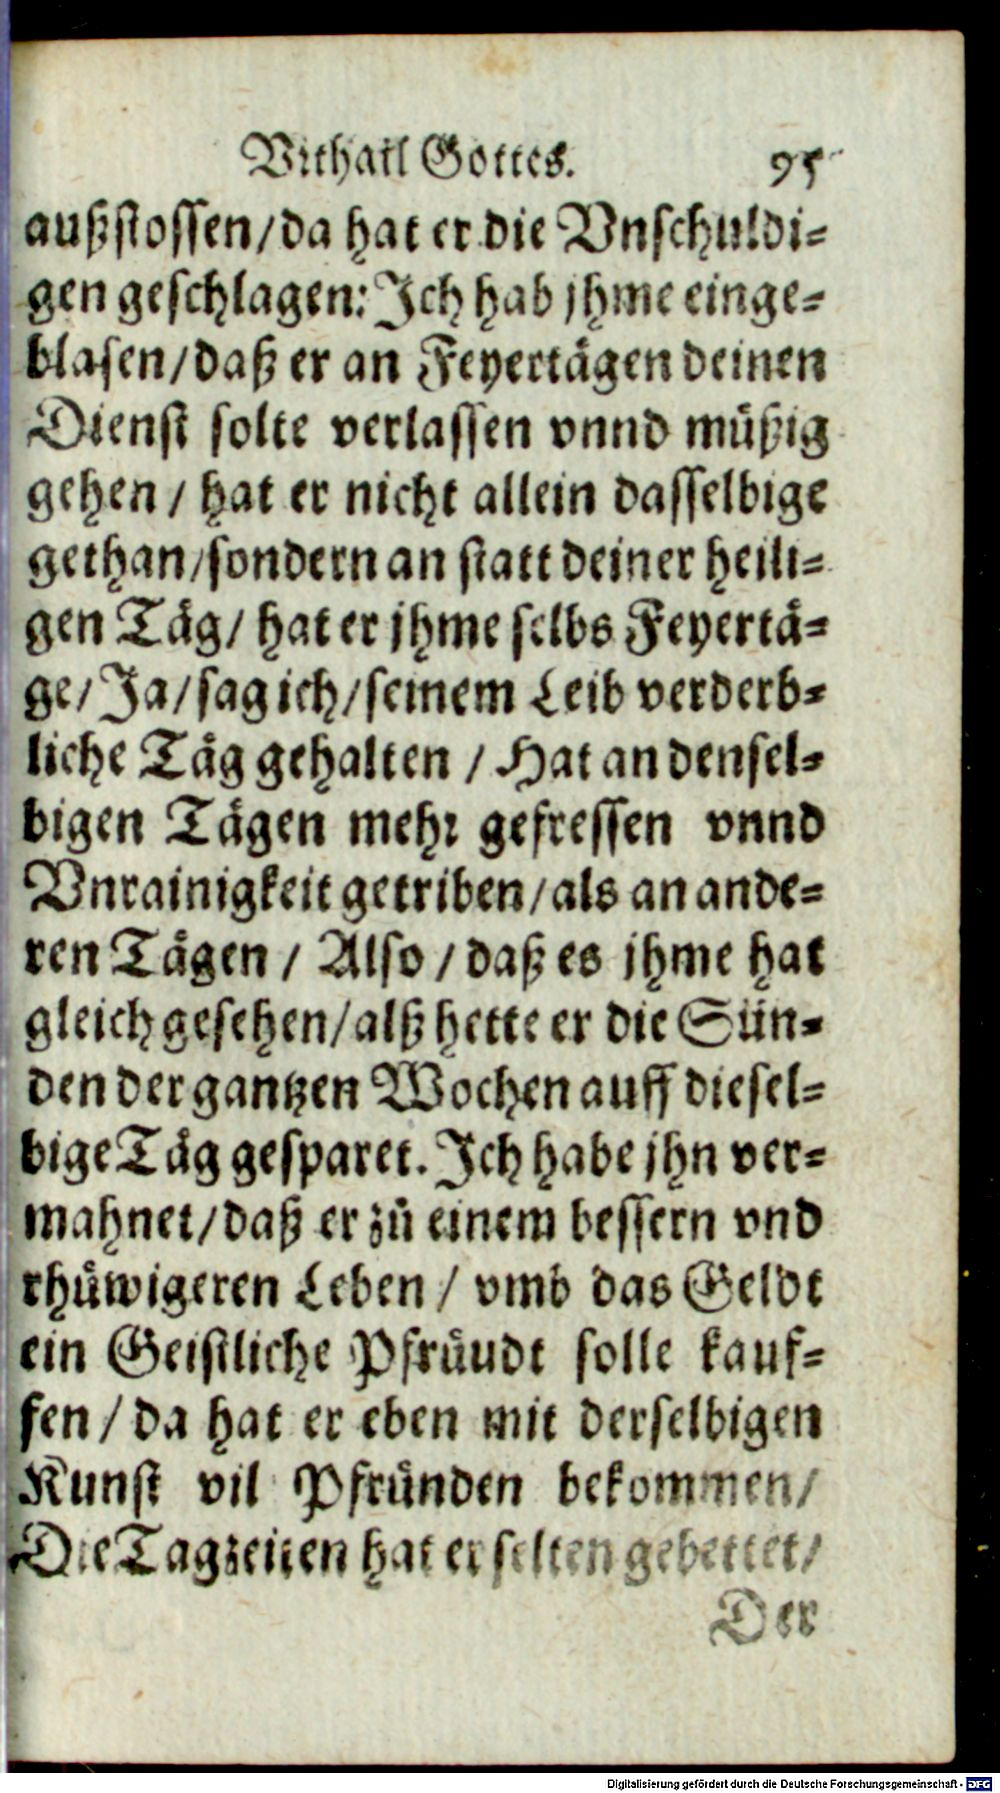 Vrthail Gottes. 95
außstossen/da hat er die Vnschuldi-
gen geschlagen: Ich hab jhme einge-
blasen/daß er an Feyertägen deinen
Dienst solte verlassen vnnd müßig
gehen / hat er nicht allein dasselbige
gethan/sondern an statt deiner heili-
gen Täg/ hat er jhme selbs Feyertä-
ge/ Ja/sag ich/seinem Leib verderb-
liche Täg gehalten / Hat an densel-
bigen Tägen mehr gefressen vnnd
Vnrainigkeit getriben/als an ande-
ren Tägen / Also / daß es jhme hat
gleich gesehen/alß hette er die Sün-
den der gantzen Wochen auff diesel-
bige Täg gesparet. Ich habe jhn ver-
mahnet/daß er zů einem bessern vnd
rhüwigeren Leben / vmb das Geldt
ein Geistliche Pfrüudt solle kauf-
fen / da hat er eben mit derselbigen
Kunst vil Pfründen bekommen/
Die Tagzeiten hat er selten gebettet/
Der
Digitalisierung gefördert durch die Deutsche Forschungsgemeinschaft - DFG